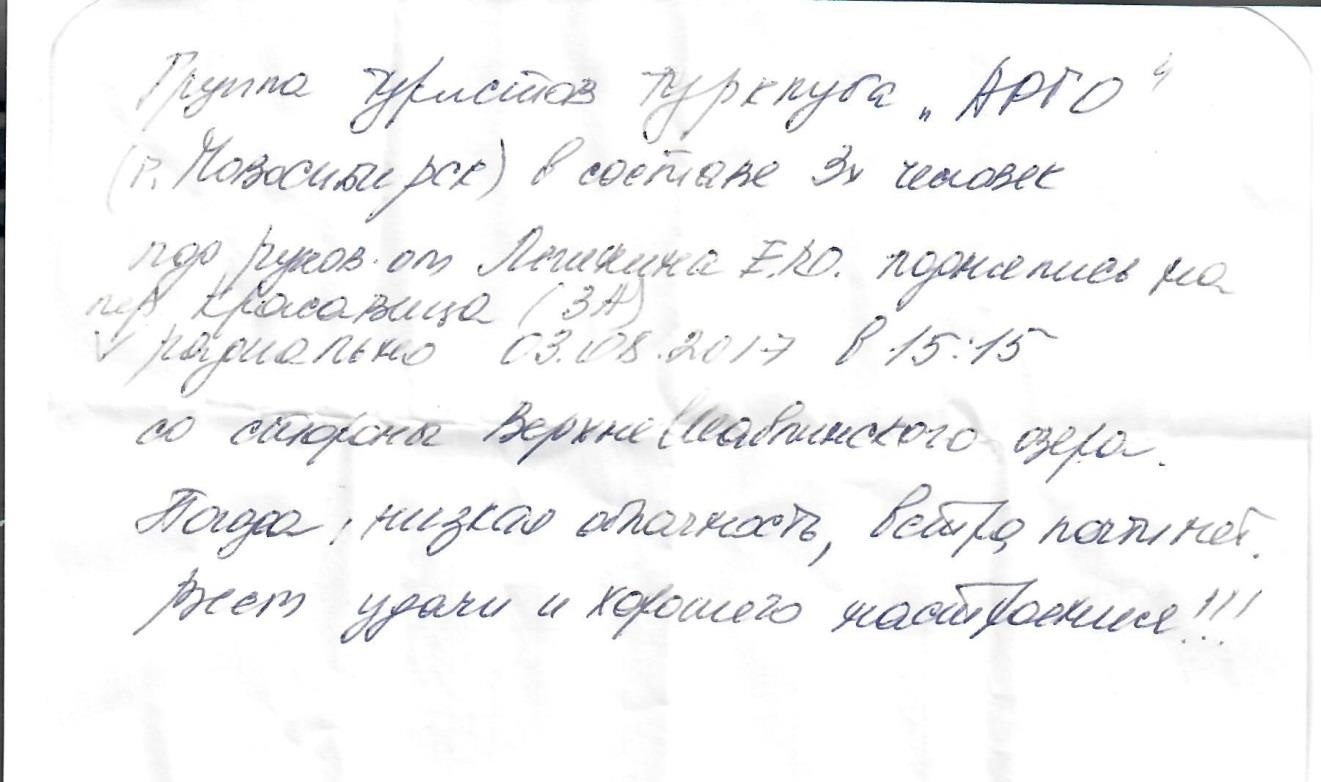 Группа туристов турклуба „АРГО“
(г. Новосибирск) в составе 3х человек
под руков-ом Е.Ю. поднялись на
пер Красавица (3А)
V радиально 03.08.2017 в 15:15
со стороны ВерхнеШавлинского озера.
Погода, низкая облачность, ветра почти нет.
Всем удачи и хорошего настроения!!!